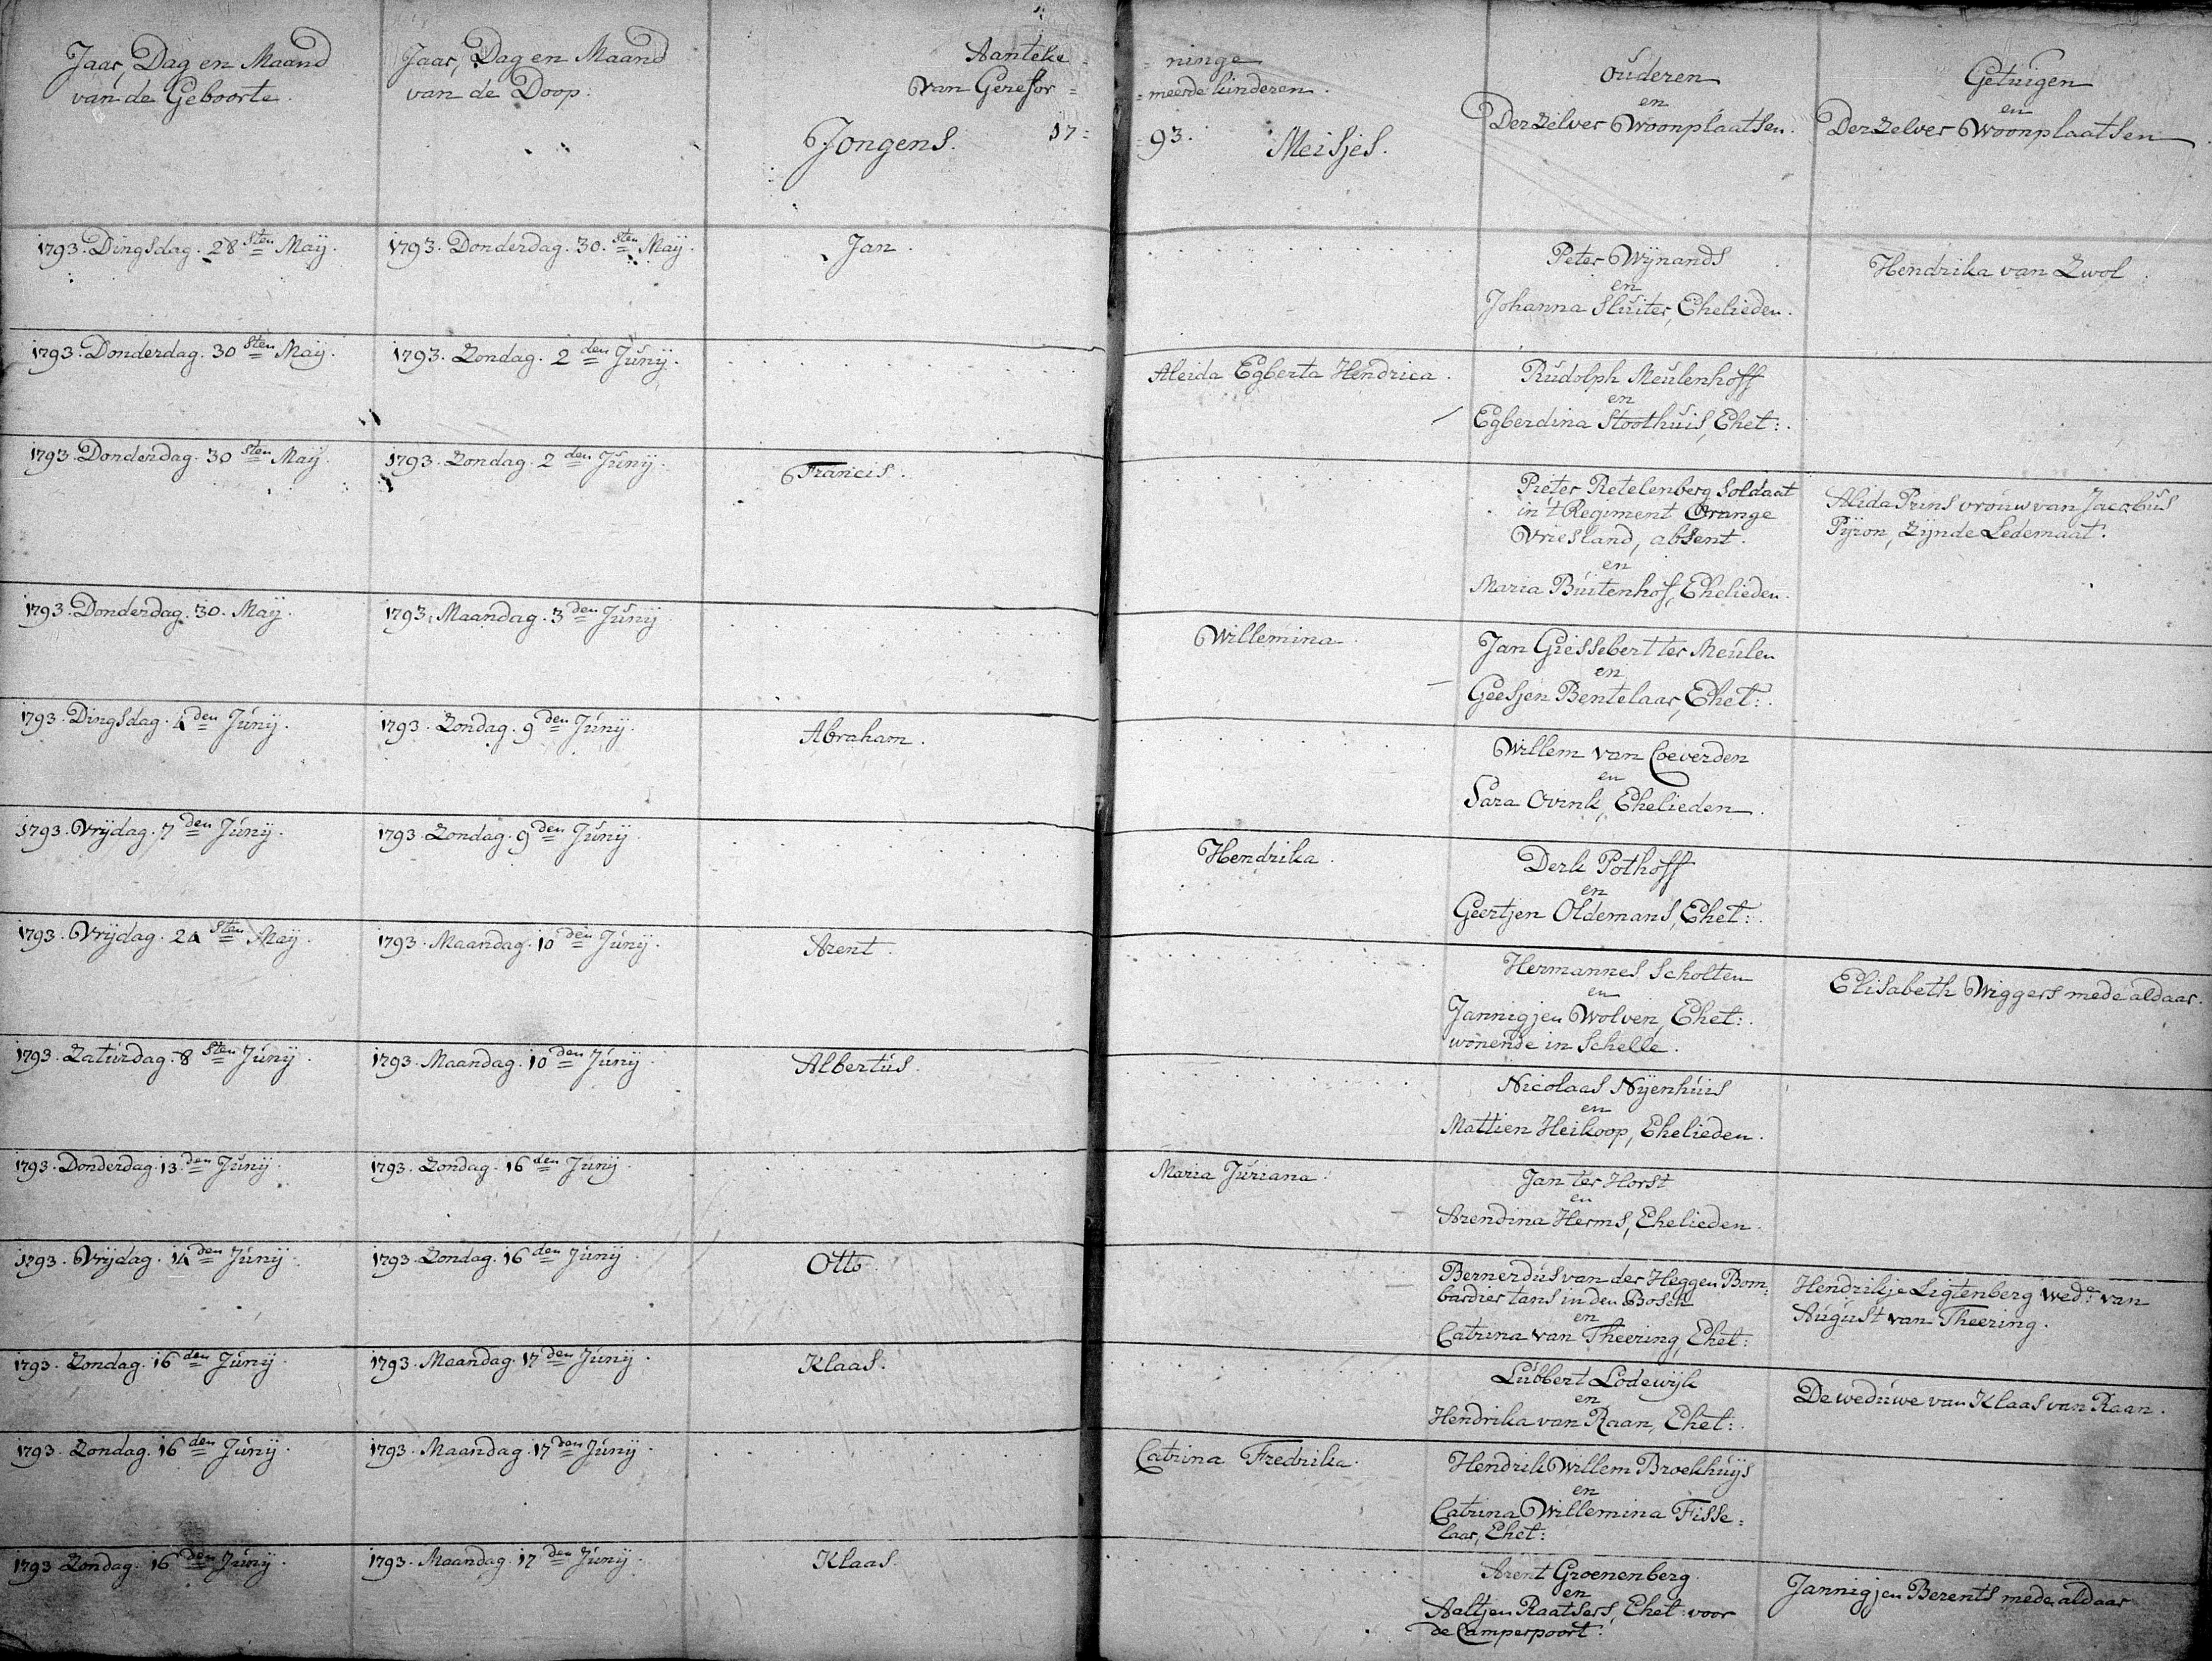 Jaar, Dag en Maand
van de Geboorte.
Jaar, Dag en Maand
van de Doop:
Aanteke = = ninge
van Gerefor = = meerde kinderen.
17 = = 93.
Jongens.
Meisjes.
Ouderen
en
Derzelver Woonplaatsen.
Getuigen
en
Derzelver Woonplaatsen
1793. Dingsdag. 28 sten Maij.
1793. Donderdag. 30. sten Maij.
Jan.
Peter Wijnands
en
Johanna Sluiter, Ehelieden.
Hendrika van Zwol.
1793. Donderdag. 30 sten Maij.
1793. Zondag. 2 den Junij.
Aleida Egberta Hendrica.
Rudolph Meulenhoff
en
Egberdina Stoothuis, Ehet:.
1793. Donderdag. 30 sten Maij.
1793. Zondag. 2 den Junij.
Francis.
Pieter Retelenberg Soldaat
in 't Regiment Orange
Vriesland, absent.
en
Maria Buitenhof, Ehelieden.
Alida Prins vrouw van Jacobus
Pijron, zijnde Ledemaat.
1793. Donderdag. 30. Maij.
1793. Maandag. 3 den Junij
Willemina.
Jan Giessebert ter Meulen
en
Geesjen Bentelaar, Ehet:.
1793. Dingsdag. 4 den Junij.
1793. Zondag. 9 den Junij.
Abraham.
Willem van Coeverden
en
Sara Ovink, Ehelieden.
1793. Vrijdag. 7 den Junij.
1793. Zondag. 9 den Junij
Hendrika.
Derk Pothoff
en
Geertjen Oldemans, Ehet:.
1793. Vrijdag. 24 sten Maij.
1793. Maandag. 10 den Junij.
Arent.
Hermannes Scholten
en
Jannigjen Wolven, Ehet:.
wonende in Schelle.
Elisabeth Wiggers mede aldaar.
1793. Zaturdag. 8 sten Junij.
1793. Maandag. 10 den Junij.
Albertus.
Nicolaas Nijenhuis
en
Mattien Heikoop, Ehelieden.
1793. Donderdag. 13. den Junij
1793. Zondag. 16 den Junij.
Maria Juriana.
Jan ter Horst
en
Arendina Herms, Ehelieden.
1793. Vrijdag. 14 den Junij.
1793. Zondag. 16 den Junij.
Otto.
Bernerdus van der Heggen Bom:
bardier tans in den Bosch
en
Catrina van Theering, Ehet:
Hendrikje Ligtenberg wede: van
August van Theering.
1793. Zondag. 16 den Junij.
1793. Maandag. 17 den Junij.
Klaas.
Lubbert Lodewijk
en
Hendrika van Raan, Ehet:.
De weduwe van Klaas van Raan.
1793. Zondag. 16 den Junij.
1793. Maandag. 17 den Junij.
Catrina Fredrika.
Hendrik Willem Broekhuijs
en
Catrina Willemina Fisse=
laar, Ehet:
1793 Zondag. 16 den Junij.
1793. Maandag. 17 den Junij.
Klaas.
Arent Groenenberg.
en
Aaltjen Raatsers, Ehet: voor
de Camperpoort.
Jannigjen Berents mede aldaar